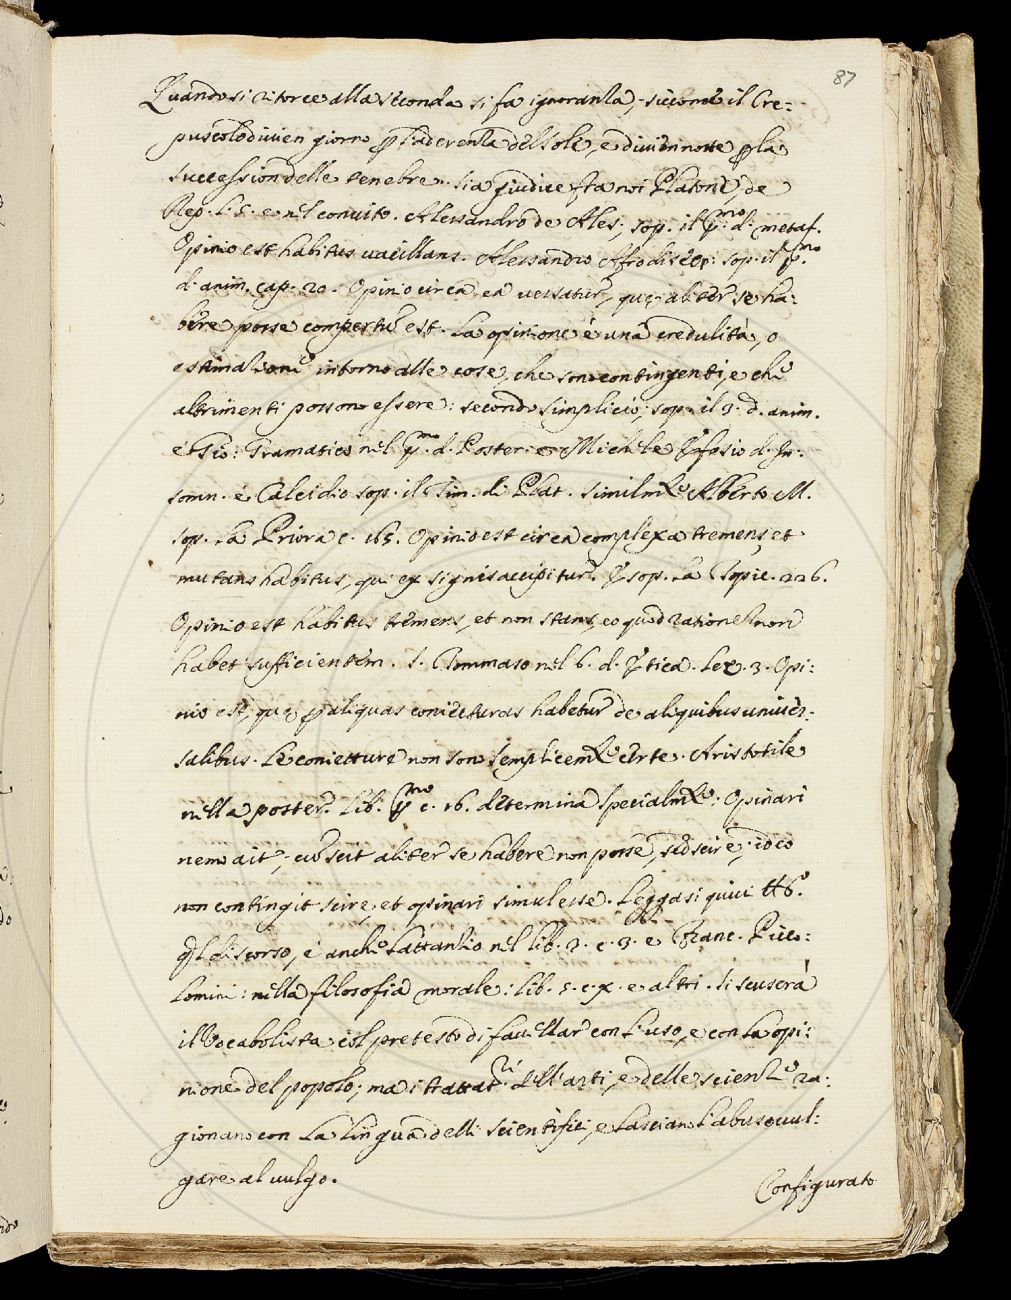 87
Quando si ritorce alla seconda si fa ignoranza, siccome il Cre-
puscolo divien giorno p l'aderenza del sole, e divien notte p la
succession delle tenebre. Sia giudice fra noi Platone, de
Rep. l. 5. e nel convito. Alessandro de Ales, sop. il pmo d. metaf.
Opinio est habitus vacillans. Alessandro Afrodiseo: sop. il pmo
d. anim. cap. 20. Opinio circa ea versatur, quę aliter se ha:
bere posse compertū est. La opinione è una credulità, o
estimazione intorno alle cose, che son contingenti, e che
altrimenti possono essere: secondo Simplicio, sop. il 3. d. anim.
e Gio: Gramatico nel pmo d. Poster. e Michele Efesio d. In:
somn. e Calcidio sop. il Tim. di Plat. similmte Alberto M.
sop. la Priora c. 165. Opinio est circa complexa tremens, et
mutans habitus, qui ex signis accipitur. E sop. la Topic. 226.
Opinio est habitus tremens, et non stans, eo quod rationem non
habet sufficientem. S. Tommaso nel 6. d. Etica. Lex. 3. Opi:
nio est, quę p aliquas coniecturas habetur de aliquibus univer-
salibus. Le conietture non son semplicemte certe. Aristotile
nella poster. Lib. pmo c. 16. determina specialmte: Opinari
nemo ait, cū scit aliter se habere non posse, sed scire; ideo
non contingit scire, et opinari simul esse. Leggasi quivi
ql discorso, e anche Lattanzio nel lib. 3. c. 3. e Franc. Picco:
lomini: nella filosofia morale: lib. 5. c. x. e altri. Si scuserà
il Vocabolista col pretesto di favellar con l'uso, e con la opi:
nione del popolo; ma i trattatri dell'arti, e delle scienze ra:
gionano con la lingua delli scientifici, e lascian l'abuso vul:
gare al vulgo.
Configurato